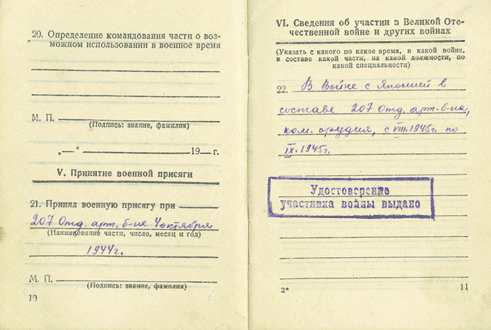 20. Определение командования части о воз-
можном использовании в военное время
М. П.
(Подпись: звание, фамилия)
„—“ 19— г.
V. Принятие военной присяги
21. Принял военную присягу при
207 Отд. арт. б-не 4 октября
(Наименование части, число, месяц и год)
1944 г.
М. П.
(Подпись: звание, фамилия)
10
VI. Сведения об участии в Великой Оте-
чественной войне и других войнах
(Указать с какого по какое время, в какой войне,
в составе какой части, на какой должности, по
какой специальности)
22. В Войне с Японией в
составе 207 Отд. арт. б-на,
ком. орудия, с VIII.1945г. по
IX.1945г.
Удостоверение
участника войны выдано
2*
11